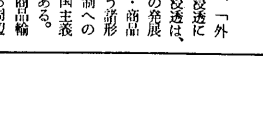 、「外
浸透に
浸透は、
の発展
・商品
う諸形
制への
国主義
ある。
商品輸
周辺